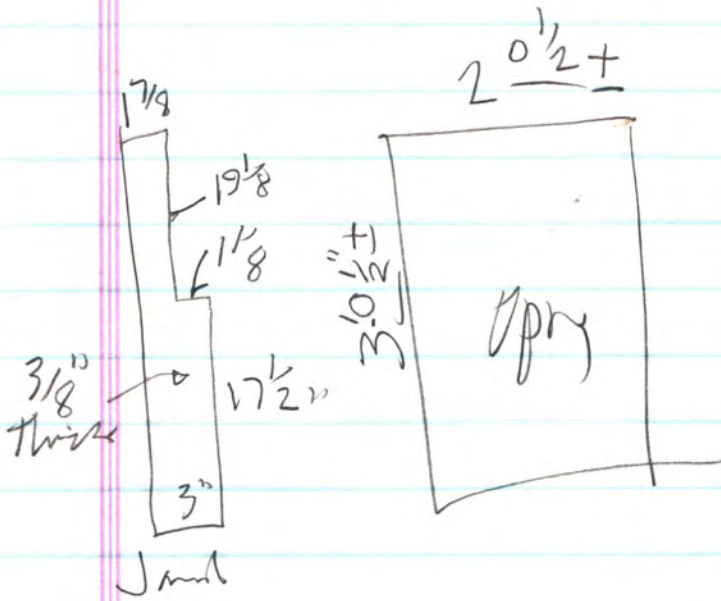 1 7/8
19 1/8
1 1/8
3/8"
thick
17 1/2"
3"
Jamb
2 0 1/2 +
3'0 1/2" +
Opng